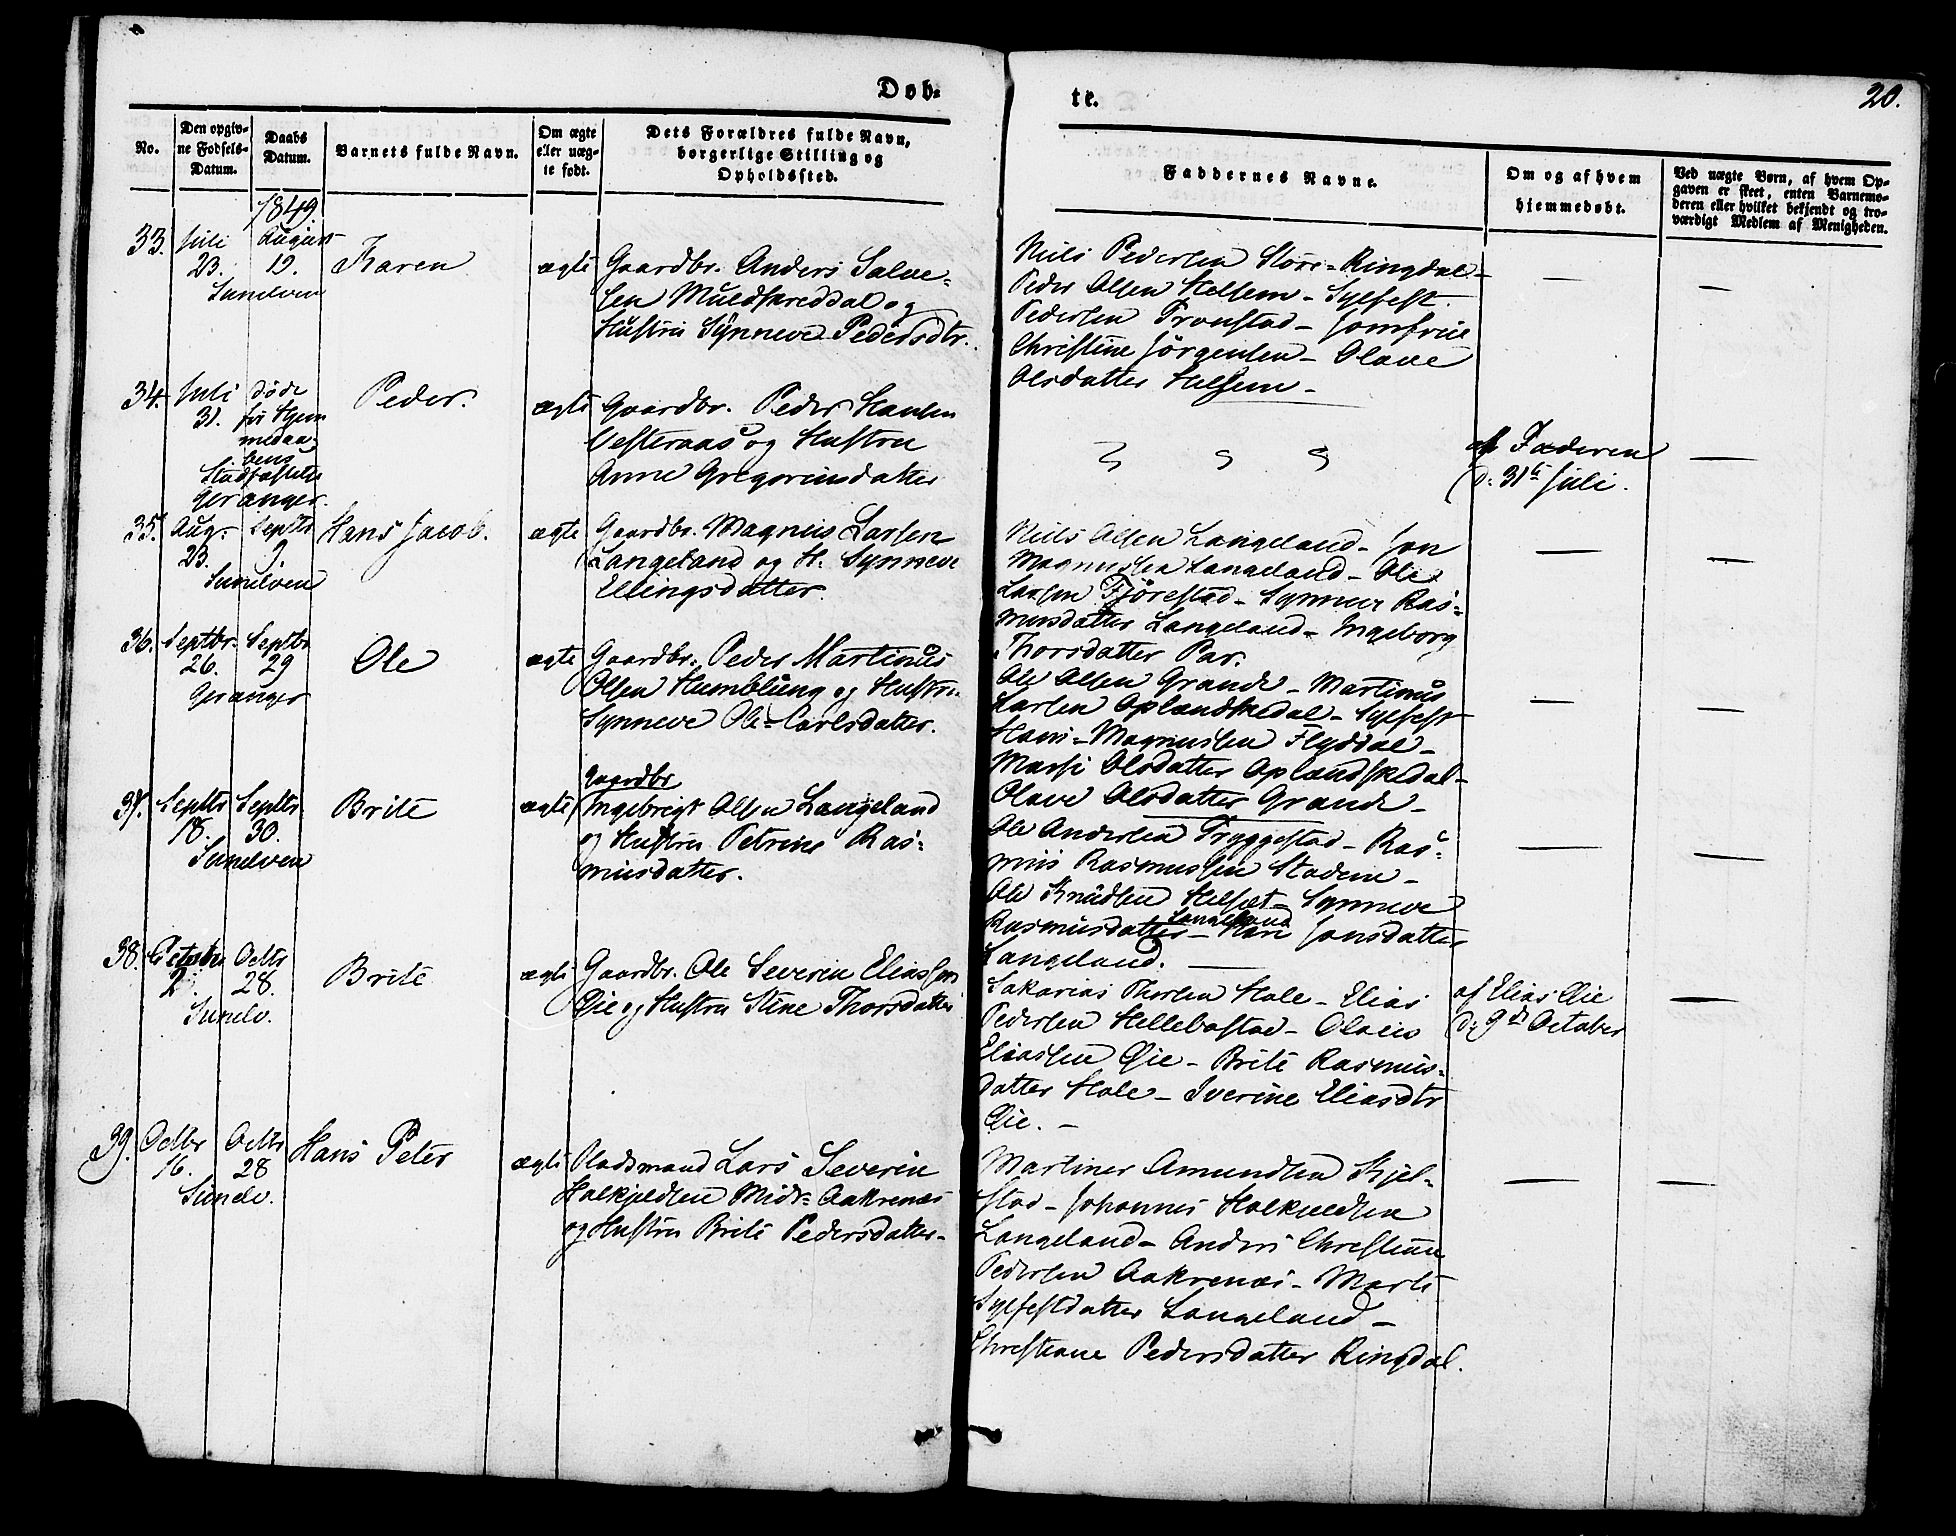 Døb-
te.
20.
No.
Den opgiv-
ne Fødsels-
Datum.
Daabs
Datum.
Barnets fulde Navn.
Om ægte
eller uæg-
te født.
Dets Forældres fulde Navn,
borgerlige Stilling og
Opholdssted.
Faddernes Navne.
Om og af hvem
hjemmedøbt.
Ved uægte Børn, af hvem Op-
gaven er skeet, enten Barnemo-
deren eller hvilket bekjendt og tro-
værdigt Medlem af Menigheden.
1849.
33. Juli August
23. 12. Karen ægte Gaardbr. Anders Salve-
Sunelven sen Muldsvreddal og
Hustru Synneve Pedersdtr.
Niels Pedersen Store-Ringdal-
Peder Olsen Helsem - Sylfest
Pedersen Tronstad - Jomfrue
Christine Jörgensen - Olave
Olsdatter Helsem -
34. Juli døde Peder. ægte Gaardbr. Peder Hansen
31. før Hjem
medaa-
bens
Stadfæstelse
Geranger.
Vesteraas og Hustru
Anne Gregoriusdatter
af Faderen
d: 31te Juli.
35. Aug. Septbr. Hans Jacob. ægte Gaardbr. Magnus Larsen
23. 9
Sunelven
Langeland og H. Synneve
Ellingsdatter.
Niels Olsen Langeland - Jon
Magnussen Langeland - Ole
Larsen Fjørestad - Synneve Ras-
musdatter Langeland - Ingeborg
Thorsdatter Par.
36. Septbr. Septbr Ole ægte Gaardbr. Peder Martinus
26. 29
Geranger
Olsen Humblung og Hustru
Synneve Ole-Carlsdatter.
Ole Olsen Grande - Martinus
Larsen Oplændskedal - Sylfest
Hans-Magnussen Flyddal -
Marte Olsdatter Oplændskedal-
Olave Olsdatter Grande -
37. Septbr Septbr. Brite ægte Gaardbr
18. 30.
Sunelven
Ingebregt Olsen Langeland
og Hustru Petrine Ras-
musdatter.
Ole Andersen Tryggestad - Ras-
mus Rasmussen Stadem -
Ole Knudsen Helset - Synneve
Rasmusdatter Langeland - Kari Jonsdatter
Langeland.
38. October Octbr Brite ægte Gaardbr. Ole Severin Eliassen
2. 28.
Sunelv.
Øie og Hustru Stine Thorsdatter
Sakarias Thorsen Hole - Elias
Pedersen Hellebostad - Olaus
Eliassen Øie - Brite Rasmus-
datter Hole - Iverine Eliasdtr
Øie. -
af Elias Øie
d: 9de October
39. Octbr Octbr Hans Peter ægte Pladsmand Lars Severin
16. 28
Sunelv.
Halkjeldsen Midt-Aakrenæs
og Hustru Brite Pedersdatter-
Martines Amundsen Kjel-
stad - Johannes Halkjeldsen
Langeland - Anders Christian
Pedersen Aakrenæs - Marte
Sylfestdatter Langeland -
Christiane Pedersdatter Ringdal.